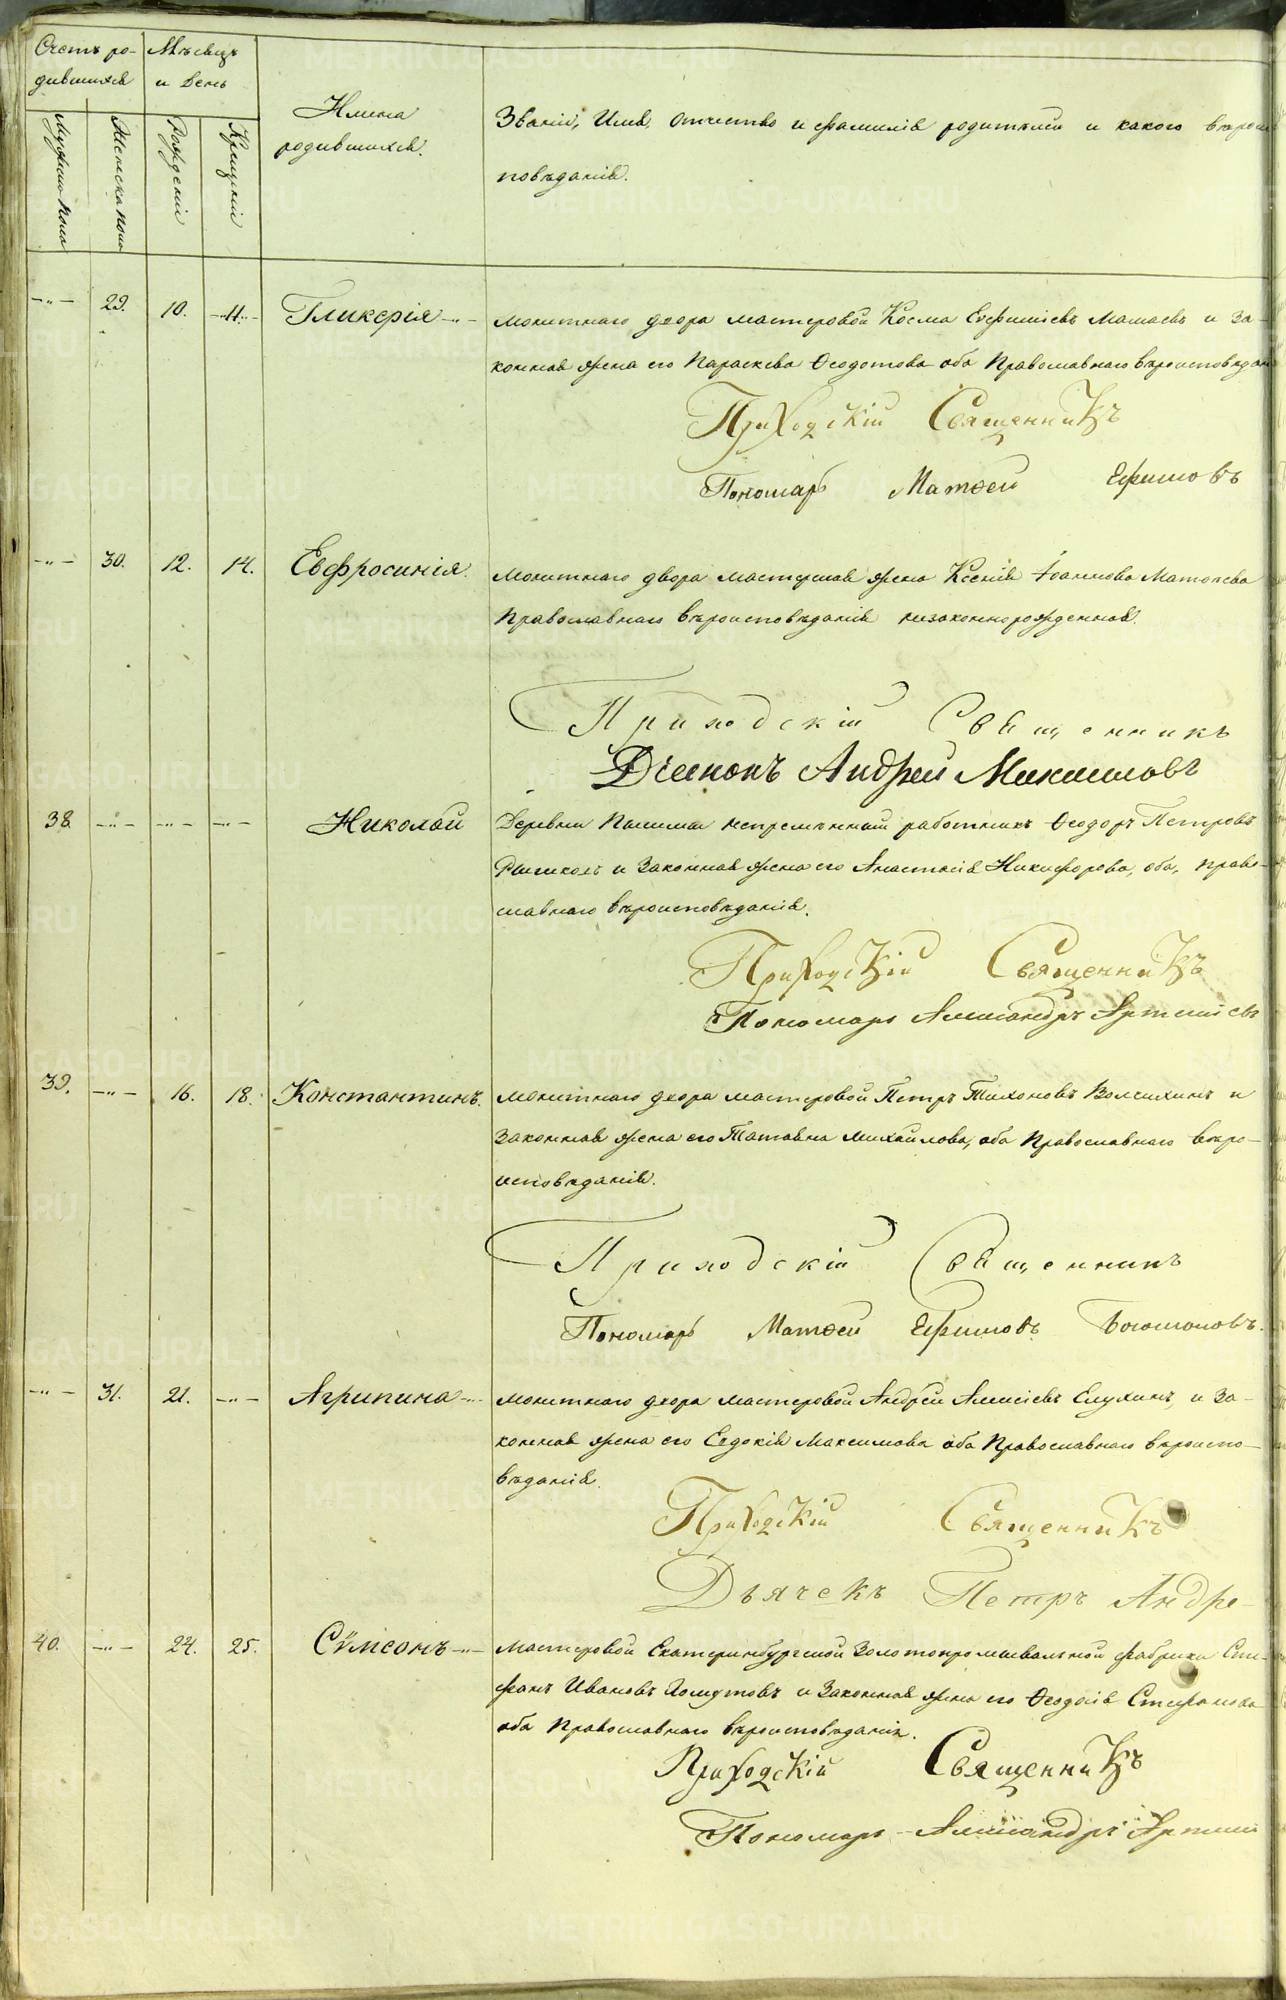 Счетъ ро-
дившихся
Мѣсяцъ
и день
Мужеска пола
Женска пола
Рожденiя
Крещенiя
Имена
родившихся.
Званiе, Имя, отчество и фамилiя родителей и какого вѣроис
повѣданiя.
-"- 29. 10. 11. Гликерiя
монетнаго двора мастеровой Косма Евфимiевъ Мамаевъ и за-
конная жена его Параскева Ѳеодотова оба Православнаго вѣроисповѣдан
Приходскiй Священникъ
Пономарь Матѳей Ефимовъ
-"- 30. 12. 14. Евфросинiя.
монетнаго двора мастерская жена Ксенiя Iоаннова
Православнаго вѣроисповѣданiя незаконнорожденная.
Приходскiй Священникъ
Дiаконъ Андрей
38 -"- -"- -"- Николай
Деревни непремѣнный работникъ Ѳеодоръ Петровъ
и законная жена его Анастасiя Никифорова, оба, право-
славнаго вѣроисповѣданiя.
Приходскiй Священникъ
Пономарь Александръ Артемiевъ
39. -"- 16. 18. Константинъ.
монетнаго двора мастеровой Петръ Тихоновъ и
законная жена его Татiана михайлова, оба Православнаго вѣро-
исповѣданiя.
Приходскiй Священникъ
Пономарь Матѳей Ефимовъ Богомоловъ.
-"- 31. 21. -"- Агрипина
монетнаго двора мастеровой Андрей Алексiевъ Елухинъ, и за-
конная жена его Евдокiя Максимова оба Православнаго вѣроиспо-
вѣданiя.
Приходскiй Священникъ
Дьячекъ Петръ Андре-
40. -"- 24. 25. Сѵмеонъ
мастеровой Екатеринбургской Золотопромывальной фабрики Сте-
фанъ Ивановъ Хомутовъ и законная жена его Ѳеодосiя Стефанова
оба Православнаго вѣроисповѣданiя.
Приходскiй Священникъ
Пономарь Александръ Артеми
METRIKI.GASO-URAL.RU